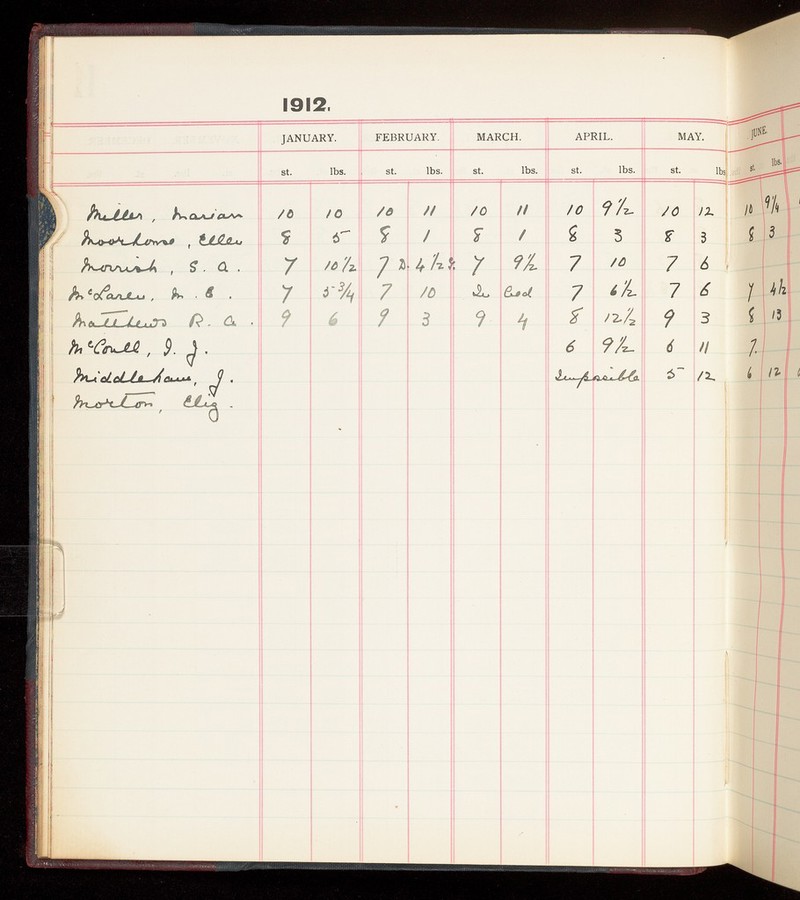 1912.
JANUARY. FEBRUARY. MARCH. APRIL. MAY. JUNE.
st. lbs. st. lbs. st. lbs. st. lbs. st. lbs st. lbs.
Miller, Marian 10 10 10 11 10 11 10 9½ 10 12 10 9¼
Moorhouse, Ellen 8 5 8 1 8 1 8 3 8 3 8 3
Morrish, S. A. 7 10½ 7 4½ 7 9½ 7 10 7 6
McLaren, M. B. 7 5¾ 7 10 In bed 7 6½ 7 6 7 4½
Matthews R. A. 9 6 9 3 9 4 8 12½ 9 3 8 13
McCoull, I. J. 6 9½ 6 11 7.
Middleham, J. Impossible 5 12 6 12
Morton, Eliz.